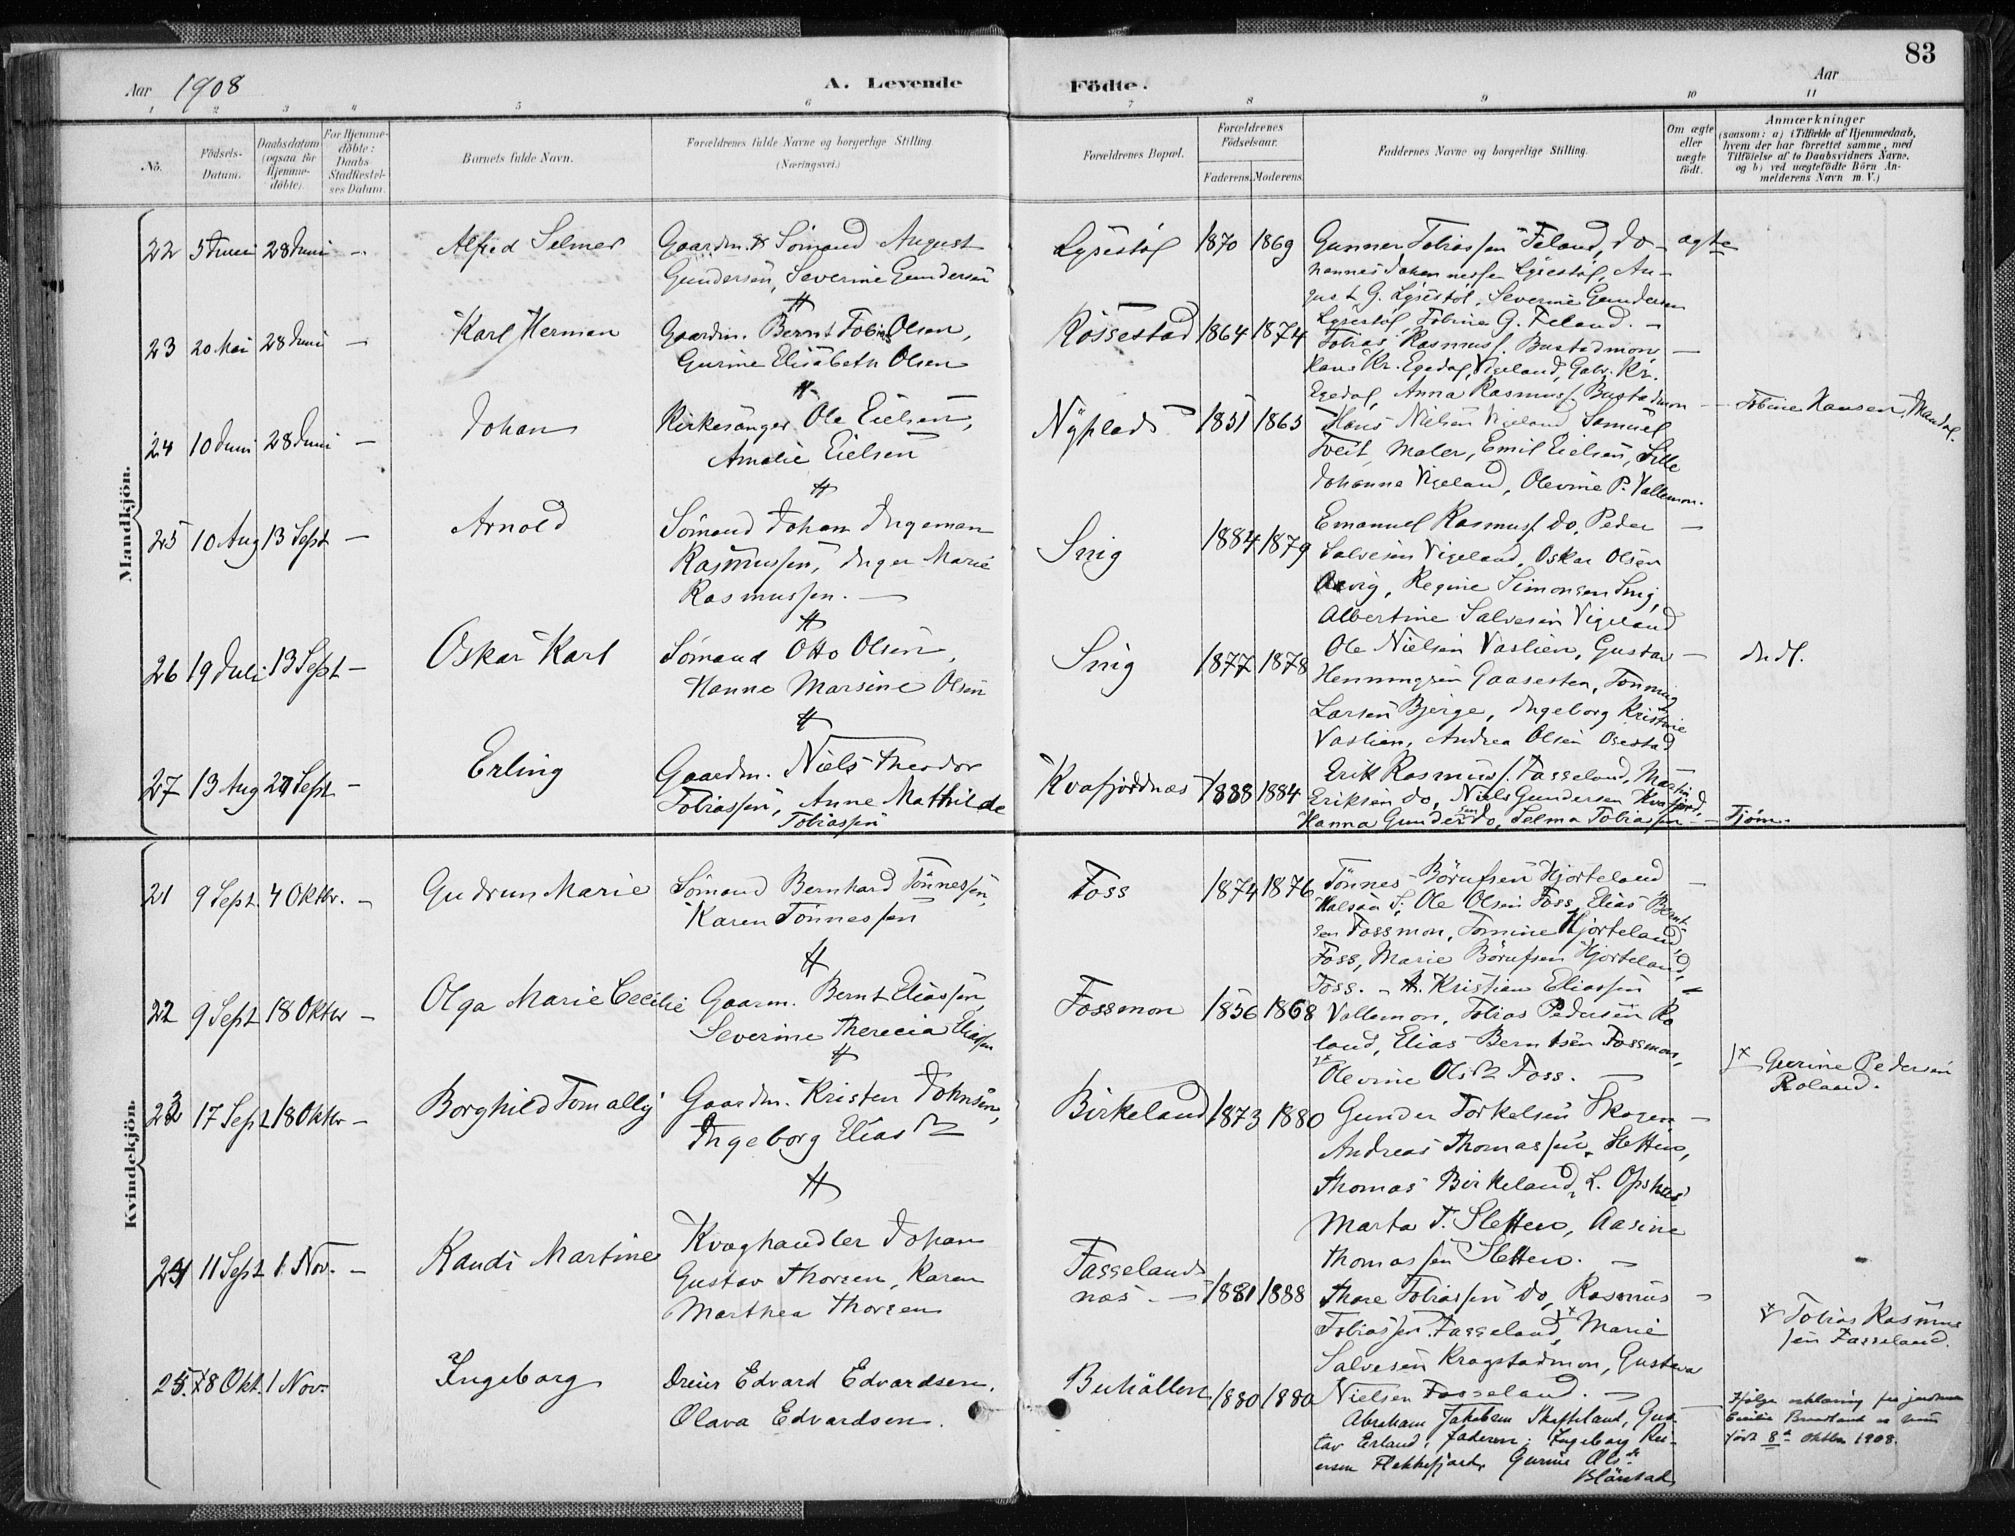 83
Aar 1908
A. Levende Födte.
Aar
1 2 3 4 5 6 7 8 9 10 11
No.
Födsels-Datum.
Daabsdatum (ogsaa for Hjemmedöbte).
For Hjemmedöbte: Daabs-Stadfæstelses Datum.
Barnets fulde Navn.
Forældrenes fulde Navne og borgerlige Stilling. (Næringsvei.)
Forældrenes Bopæl.
Forældrenes Födselsaar.
Faderens. Moderens.
Faddernes Navne og borgerlige Stilling.
Om ægte eller uægte födt.
Anmærkninger
(saasom: a) i Tilfælde af Hjemmedaab,
hvem der har forrettet samme, med
Tilföielse af to Daabsvidners Navne,
og b) ved uægtefödte Börn Anmelderens Navn m. V.)
Mandkjön.
22 5 Juni 28 Juni - Alfred Selmer
Gaardm. & Sömand August
Gundersen, Severine Gundersen
Lysestöl 1870 1869
Gunner Tobiassen Feland, Jo-
hannes Johannessen Lysestöl, Au-
gust G. Lysestöl, Severine Gundersen
Lysestöl, Tobine G. Feland. -
ægte
23 20 Mai 28 Juni - Karl Herman
Gaardm. Bernt Tobias Olsen,
Gurine Elisabeth Olsen
Rössestad 1864 1874
Tobias Rasmuss. Bustadmon
Hans Kr. Egedal, Vigeland, Gabr. Kr.
Egedal, Anna Rasmuss. Bustadmon
24 10 Juni 28 Juni - Johan
Kirkesanger Ole Eielsen,
Amalie Eielsen
Nyplads 1851 1865
Hans Nielsen Vigeland, Samuel
Tveit, Maler, Emil Eielsen, Sille
Johanne Vigeland, Olevine P. Vallemon.
Tobine Hansen, Mandal.
25 10 Aug 13 Sept - Arnold
Sömand Johan Ingeman
Rasmussen, Inger Marie
Rasmussen. -
Snig 1884 1879
Emanuel Rasmuss. do, Peder
Salvesen Vigeland, Oskar Olsen
Aavig, Regine Simonsen Snig,
Albertine Salvesen Vigeland
26 19 Juli 13 Sept - Oskar Karl
Sömand Otto Olsen,
Hanne Marsine Olsen
Snig 1877 1878
Ole Nielsen Vaslien, Gustav
Henningsen Gaasesten, Tönning
Larsen Bjerge, Ingeborg Kristine
Vaslien, Andrea Olsen Osestad
Indl.
27 13 Aug 27 Sept - Erling
Gaardm. Niels Theodor
Tobiassen, Anne Mathilde
Tobiassen
Kvafjordnæs 1888 1884
Erik Rasmuss. Fasseland, Martin
Eriksen do, Niels Gundersen Kvafjord,
Hanna Gundersen do, Selma Tobiassen
Fjöm.
Kvindekjön.
21 9 Sept 4 Oktbr. - Gudrun Marie
Sömand Bernhard Tönnessen,
Karen Tönnessen
Foss 1874 1876
Tönnes Börufsen Hjorteland
Halsaa S., Ole Olsen Foss, Elias Bernt-
sen Fossmon, Tomine Hjorteland,
Foss, Marie Börufsen Hjorteland,
Foss. -
22 9 Sept 18 Oktbr - Olga Marie Cecilie
Gaardm. Bernt Eliassen,
Severine Therecia Eliassen
Fossmon 1856 1868
Kristian Eliassen
Vallemon, Tobias Pedersen Ro
land, Elias Berntsen Fossmon,
Olevine Olsen Foss. -
Gurine Pedersen
Roland.
23 17 Sept 18 Oktbr - Borghild Tomally
Gaardm. Kristen Johnsen,
Ingeborg Elias
Birkeland 1873 1880
Gunder Torkelsen Skogen
Andreas Thomassen, Sletten,
Thomas Birkeland, L. Opshus
Marta T. Sletten, Aasine
Thomassen Sletten. -
24 11 Sept 1. Nov. - Randi Martine
Kvæghandler Johan
Gustav Thorsen, Karen
Marthea Thorsen
Fasselands
næs. - 1881 1888
Thore Tobiassen do, Rasmus
Tobiassen Fasseland, Marie
Salvesen Kragstadmon, Gustava
Nielsen Fasseland. -
Tobias Rasmus
sen Fasseland.
25. 8 Okt. 1 Nov. Ingeborg
Dreier Edvard Edvardsen.
Olava Edvardsen.
Buhölten 1880 1880
Abraham Jakobsen Skofteland, Gus-
tav Erland, faderen, Ingeborg Rei-
ersen Flekkefjord, Gurine Ols.
Blörstad
Ifölge erklæring fra jordmor
Cecilie
född 8de Oktbr 1908.